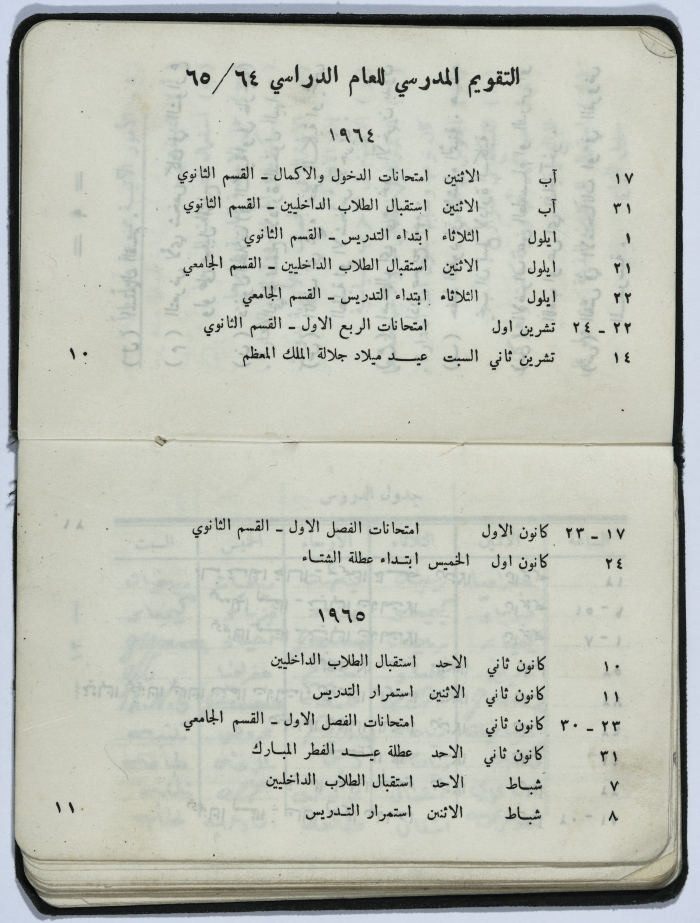 التقويم المدرسي للعام الدراسي ٦٤/٦٥
١٩٦٤
١٧ آب الاثنين امتحانات الدخول والاكمال ـ القسم الثانوي
٣١ آب الاثنين استقبال الطلاب الداخليين ـ القسم الثانوي
١ ايلول الثلاثاء ابتداء التدريس ـ القسم الثانوي
٢١ ايلول الاثنين استقبال الطلاب الداخليين ـ القسم الجامعي
٢٢ ايلول الثلاثاء ابتداء التدريس ـ القسم الجامعي
٢٢ ـ ٢٤ تشرين اول امتحانات الربع الاول ـ القسم الثانوي
١٤ تشرين ثاني السبت عيد ميلاد جلالة الملك المعظم
١٠
١٧ ـ ٢٣ كانون الاول امتحانات الفصل الاول ـ القسم الثانوي
٢٤ كانون اول الخميس ابتداء عطلة الشتاء
١٩٦٥
١٠ كانون ثاني الاحد استقبال الطلاب الداخليين
١١ كانون ثاني الاثنين استمرار التدريس
٢٣ ـ ٣٠ كانون ثاني امتحانات الفصل الاول ـ القسم الجامعي
٣١ كانون ثاني الاحد عطلة عيد الفطر المبارك
٧ شباط الاحد استقبال الطلاب الداخليين
٨ شباط الاثنين استمرار التدريس
١١